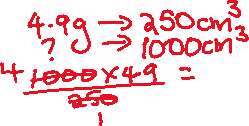 4.9g → 250cm³
? → 1000cm³
4 1000 × 49 =
250
1